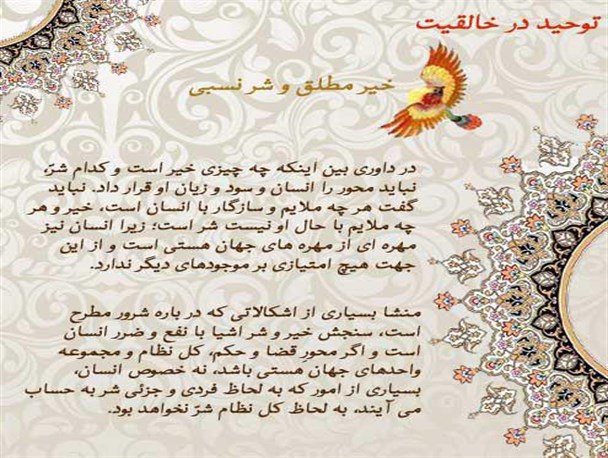 توحید در خالقیت
خیر مطلق و شر نسبی
در داوری بین اینکه چه چیزی خیر است و کدام شرّ،
نباید محور را انسان و سود و زیان او قرار داد. نباید
گفت هر چه ملایم و سازگار با انسان است، خیر و هر
چه ملایم با حال او نیست شر است؛ زیرا انسان نیز
مهره ای از مهره های جهان هستی است و از این
جهت هیچ امتیازی بر موجودهای دیگر ندارد.
منشا بسیاری از اشکالاتی که در باره شرور مطرح
است، سنجش خیر و شر اشیا با نفع و ضرر انسان
است و اگر محورِ قضا و حکم، کل نظام و مجموعه
واحدهای جهان هستی باشد، نه خصوص انسان،
بسیاری از امور که به لحاظ فردی و جزئی شر به حساب
می آیند، به لحاظ کل نظام شرّ نخواهد بود.